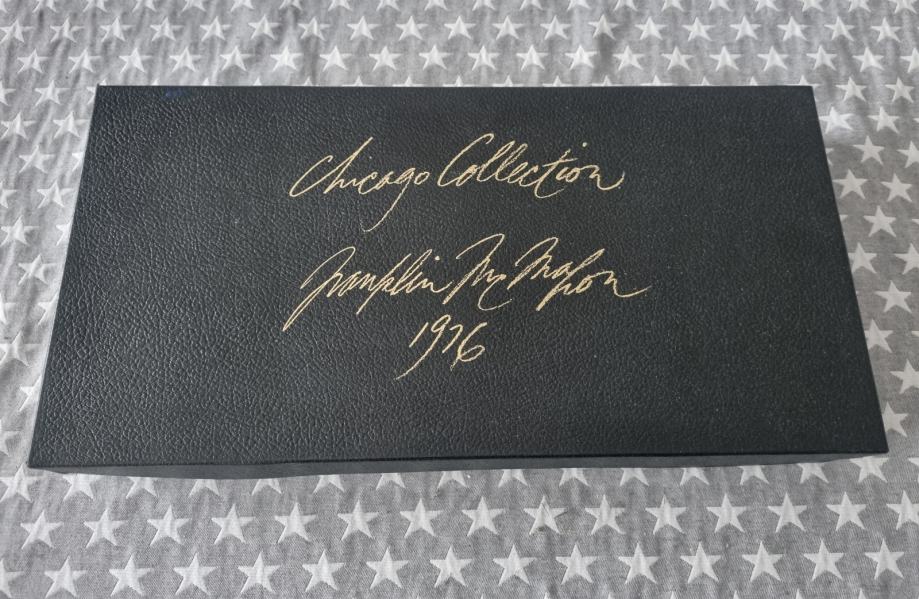 Chicago Collection
Franklin McMahon
1976